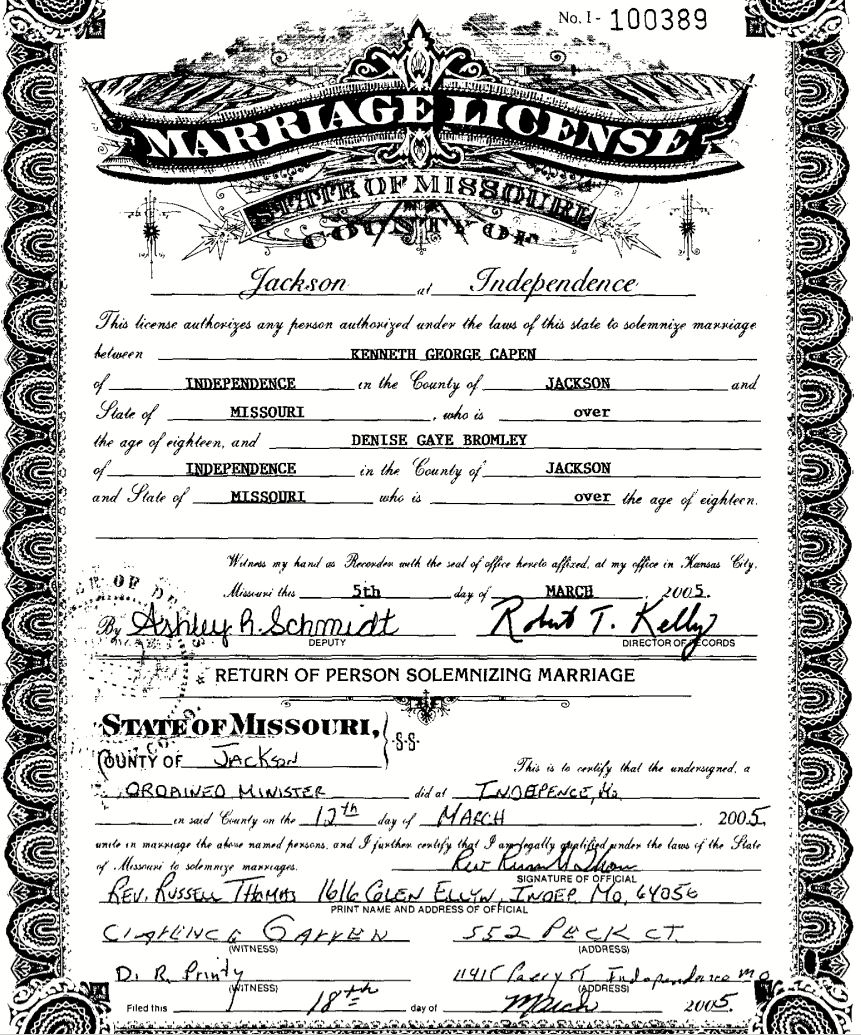 No. I - 100389
MARRIAGE LICENSE
STATE OF MISSOURI
COUNTY OF
Jackson at Independence
This license authorizes any person authorized under the laws of this state to solemnize marriage
between KENNETH GEORGE CAPEN
of INDEPENDENCE in the County of JACKSON and
State of MISSOURI, who is over
the age of eighteen, and DENISE GAYE BROMLEY
of INDEPENDENCE in the County of JACKSON
and State of MISSOURI who is over the age of eighteen.
Witness my hand as Recorder with the seal of office hereto affixed, at my office in Kansas City,
Missouri this 5th day of MARCH, 2005.
By Ashley R. Schmidt Robert T. Kelly
DEPUTY DIRECTOR OF RECORDS
RETURN OF PERSON SOLEMNIZING MARRIAGE
STATE OF MISSOURI,
COUNTY OF Jackson S·S·
This is to certify that the undersigned, a
ORDAINED MINISTER did at INDEPENCE, Mo
in said County on the 12th day of MARCH 2005,
unite in marriage the above named persons, and I further certify that I am legally qualified under the laws of the State
of Missouri to solemnize marriages. Rev
SIGNATURE OF OFFICIAL
REV. RUSSELL THOMAS 1616 GLEN ELLYN, INDEP. MO, 64056
PRINT NAME AND ADDRESS OF OFFICIAL
CLARENCE 552 PECK CT.
(WITNESS) (ADDRESS)
D. R. Printy 11415 Independence Mo
(WITNESS) (ADDRESS)
Filed this 18th day of March 2005.